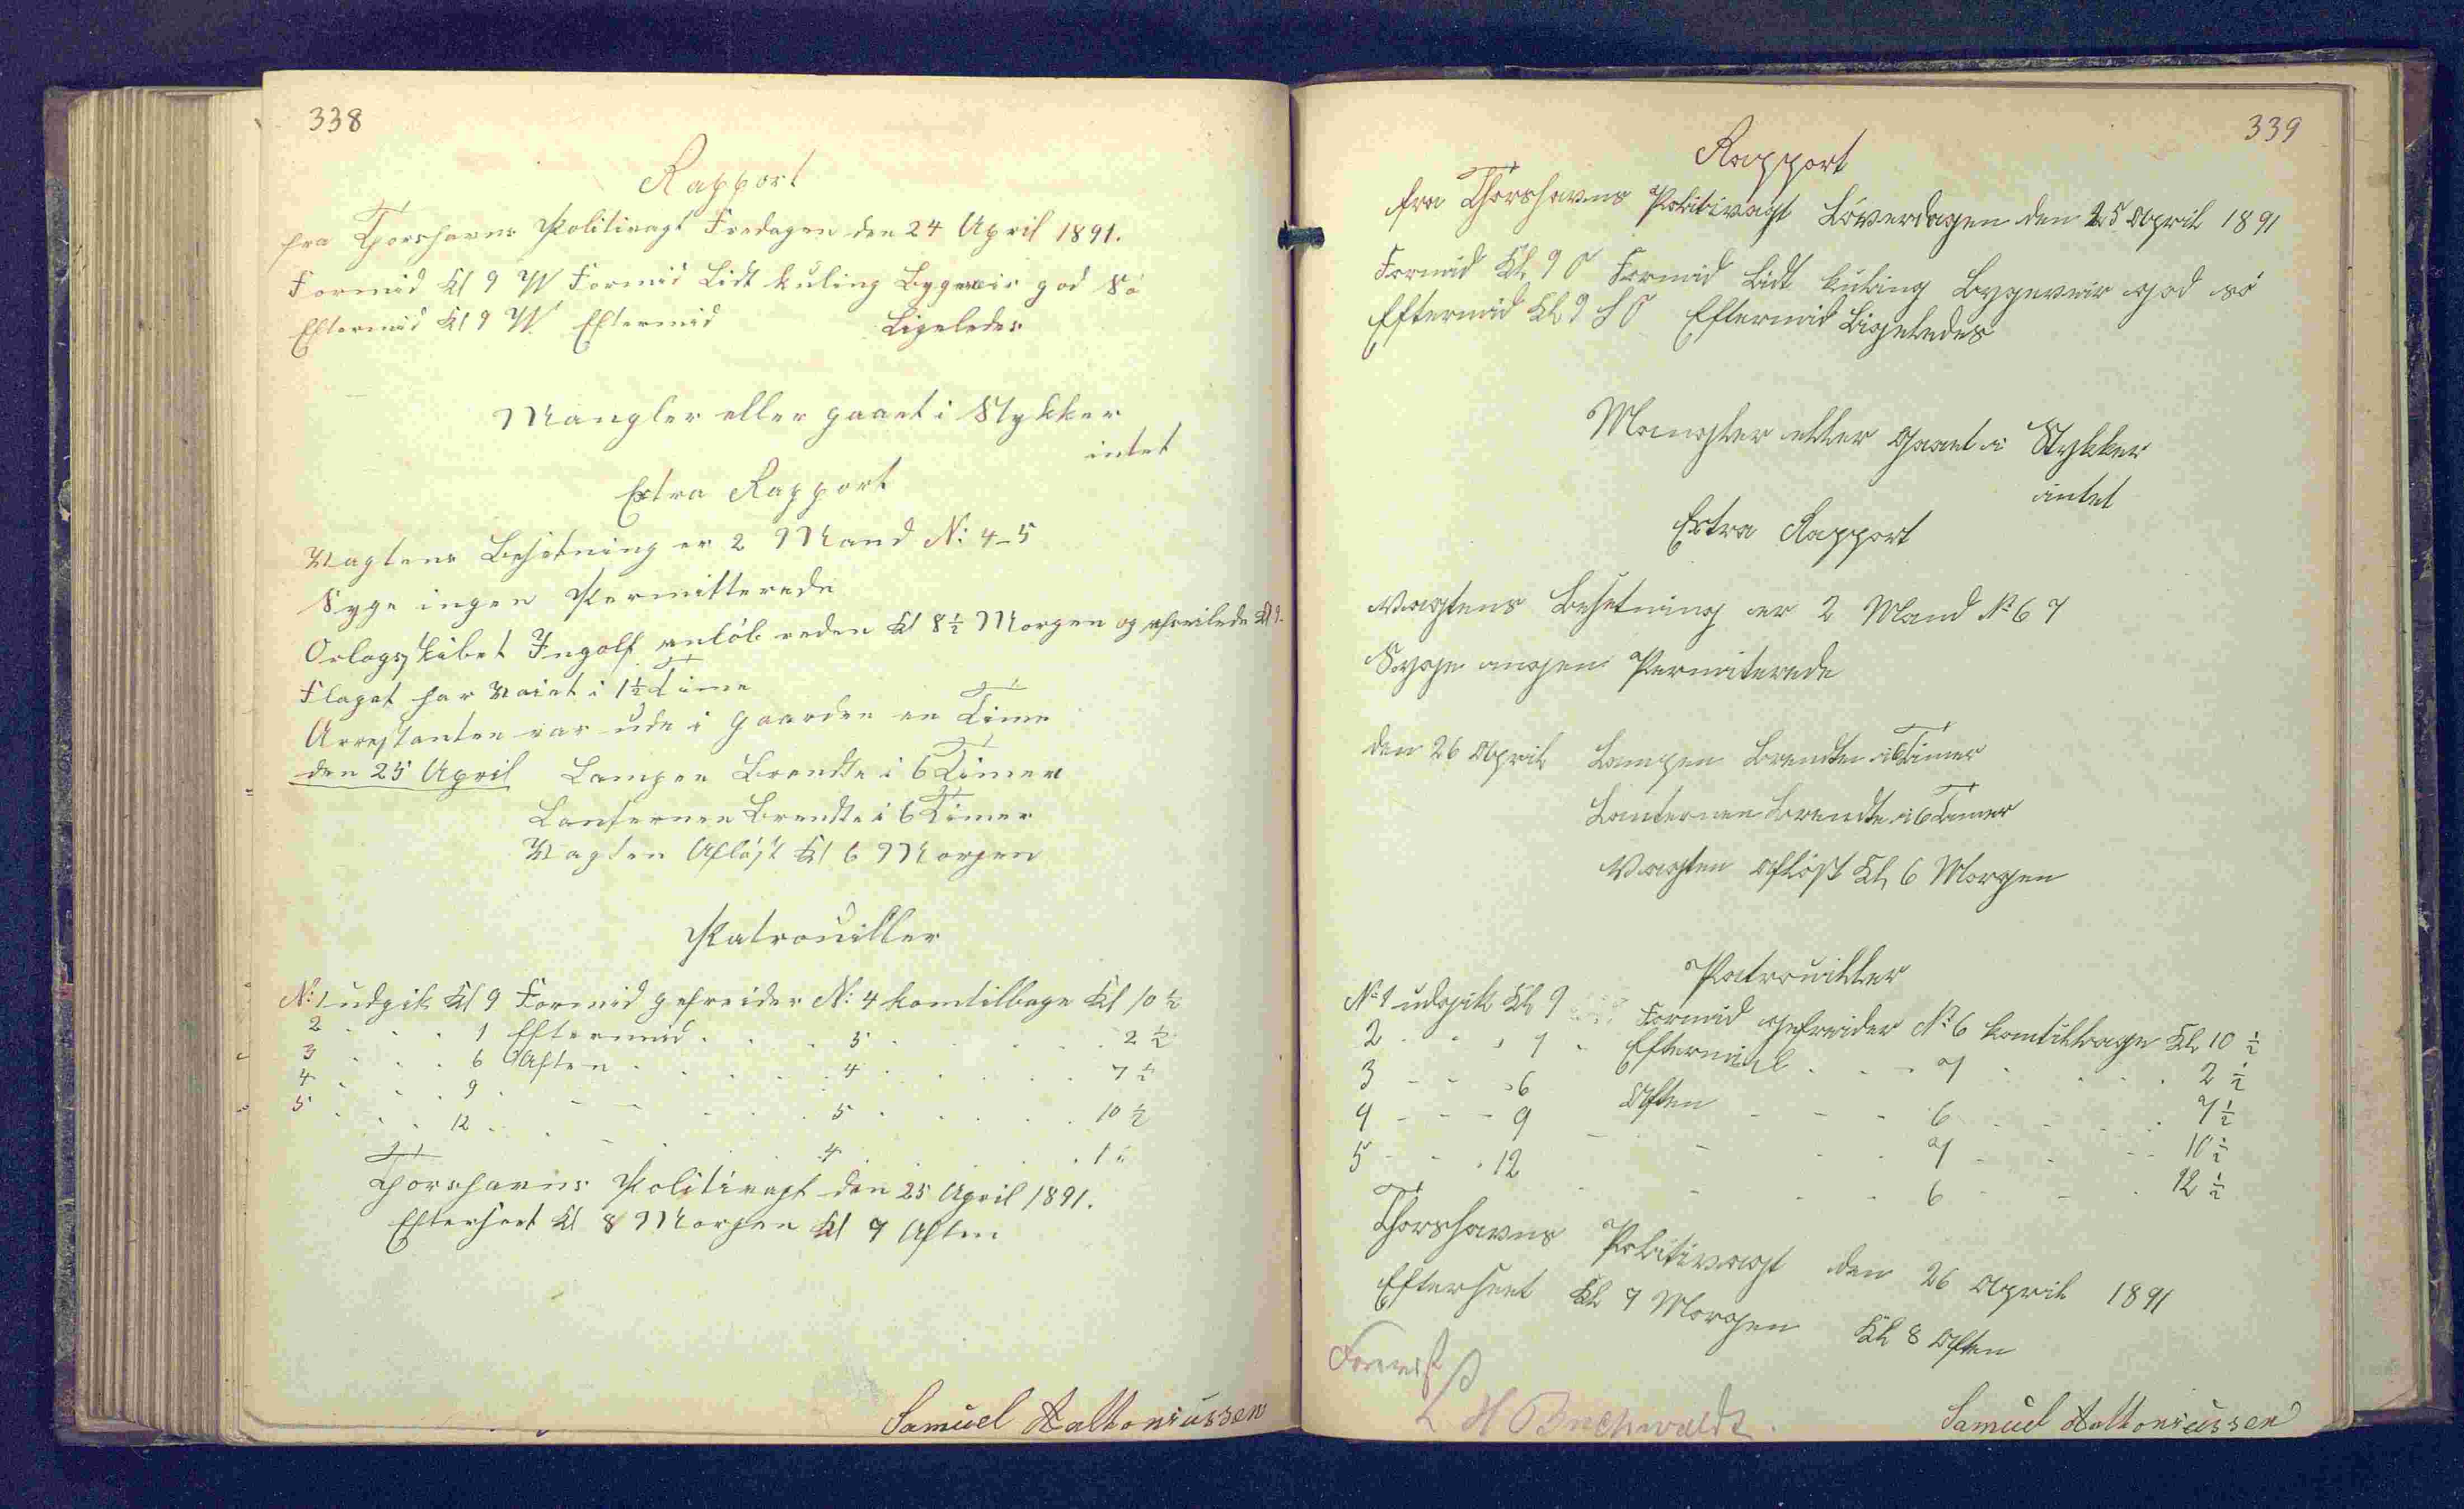 338
Rapport
fra Thorshavns Politivagt Fredagen den 24 April 1891.
Formid Kl 9 W Formid Lidt kuling Bygeveir god Sö
Eftermid Kl 9 W Eftermid Ligeledes
Mangler eller gaaet i Stykker
intet
Extra Rapport
Vagtens Besetning er 2 Mand No: 4-5
Syge ingen Permitterede
Orlogsskibet Ingolf anlöb reden Kl 8½ Morgen og afseilede Kl 9.
Flaget har Vaiet i 1½ Time
Arrestanten var ude i gaarden en Time
den 25 April Lampen Brendte i 6 Timer
Lanternen Brendte i 6 Timer
Vagten Aflöst Kl 6 Morgen
Patrouiller
No: 1 udgik Kl 9 Formid gefreider No: 4 kom tilbage Kl 10 ½
2 . . . 1 Eftermid . . . 5 . . . . . 2 ½
3 . . . 6 Aften . . . . 4 . . . . . 7 ½
4 . . . 9 . - - . . 5 . . . . . 10 ½
5 . . . 12 . . - . . 4 . . . . . 1 "
Thorshavns Politivagt den 25 April 1891.
Efterseet Kl 8 Morgen Kl 9 Aften
Samuel Haltoniussen
339
Rapport
fra Thorshavns Politivagt Löverdagen den 25 April 1891
Formid Kl 9 O Formid Lidt kuling Bygeveir god sö
Eftermid Kl 9 S O Eftermid Ligeledes
Mangler eller gaaet i Stykker
intet
Extra Rapport
Vagtens Besetning er 2 Mand No 6 7
Syge ingen Permiterede
den 26 April Lampen Brendte i 6 Timer
Lanternen Brendte i 6 Timer
Vagten Aflöst Kl 6 Morgen
Patrouiller
No 1 udgik Kl 9 Formid gefreider No 6 kom tilbage Kl 10 ½
2 . . . 1 . Eftermid . . . 7 . . . . 2 ½
3 - - - 6 Aften - - - 6 . . . . 7 ½
4 - - - 9 - - . . 7 - - - - 10 ½
5 - - . 12 - - . . 6 - - . 12 ½
Thorshavns Politivagt den 26 April 1891
Efterseet Kl 7 Morgen Kl 8 Aften
Forevist
L H Buchwaldt.
Samuel Haltoniussen